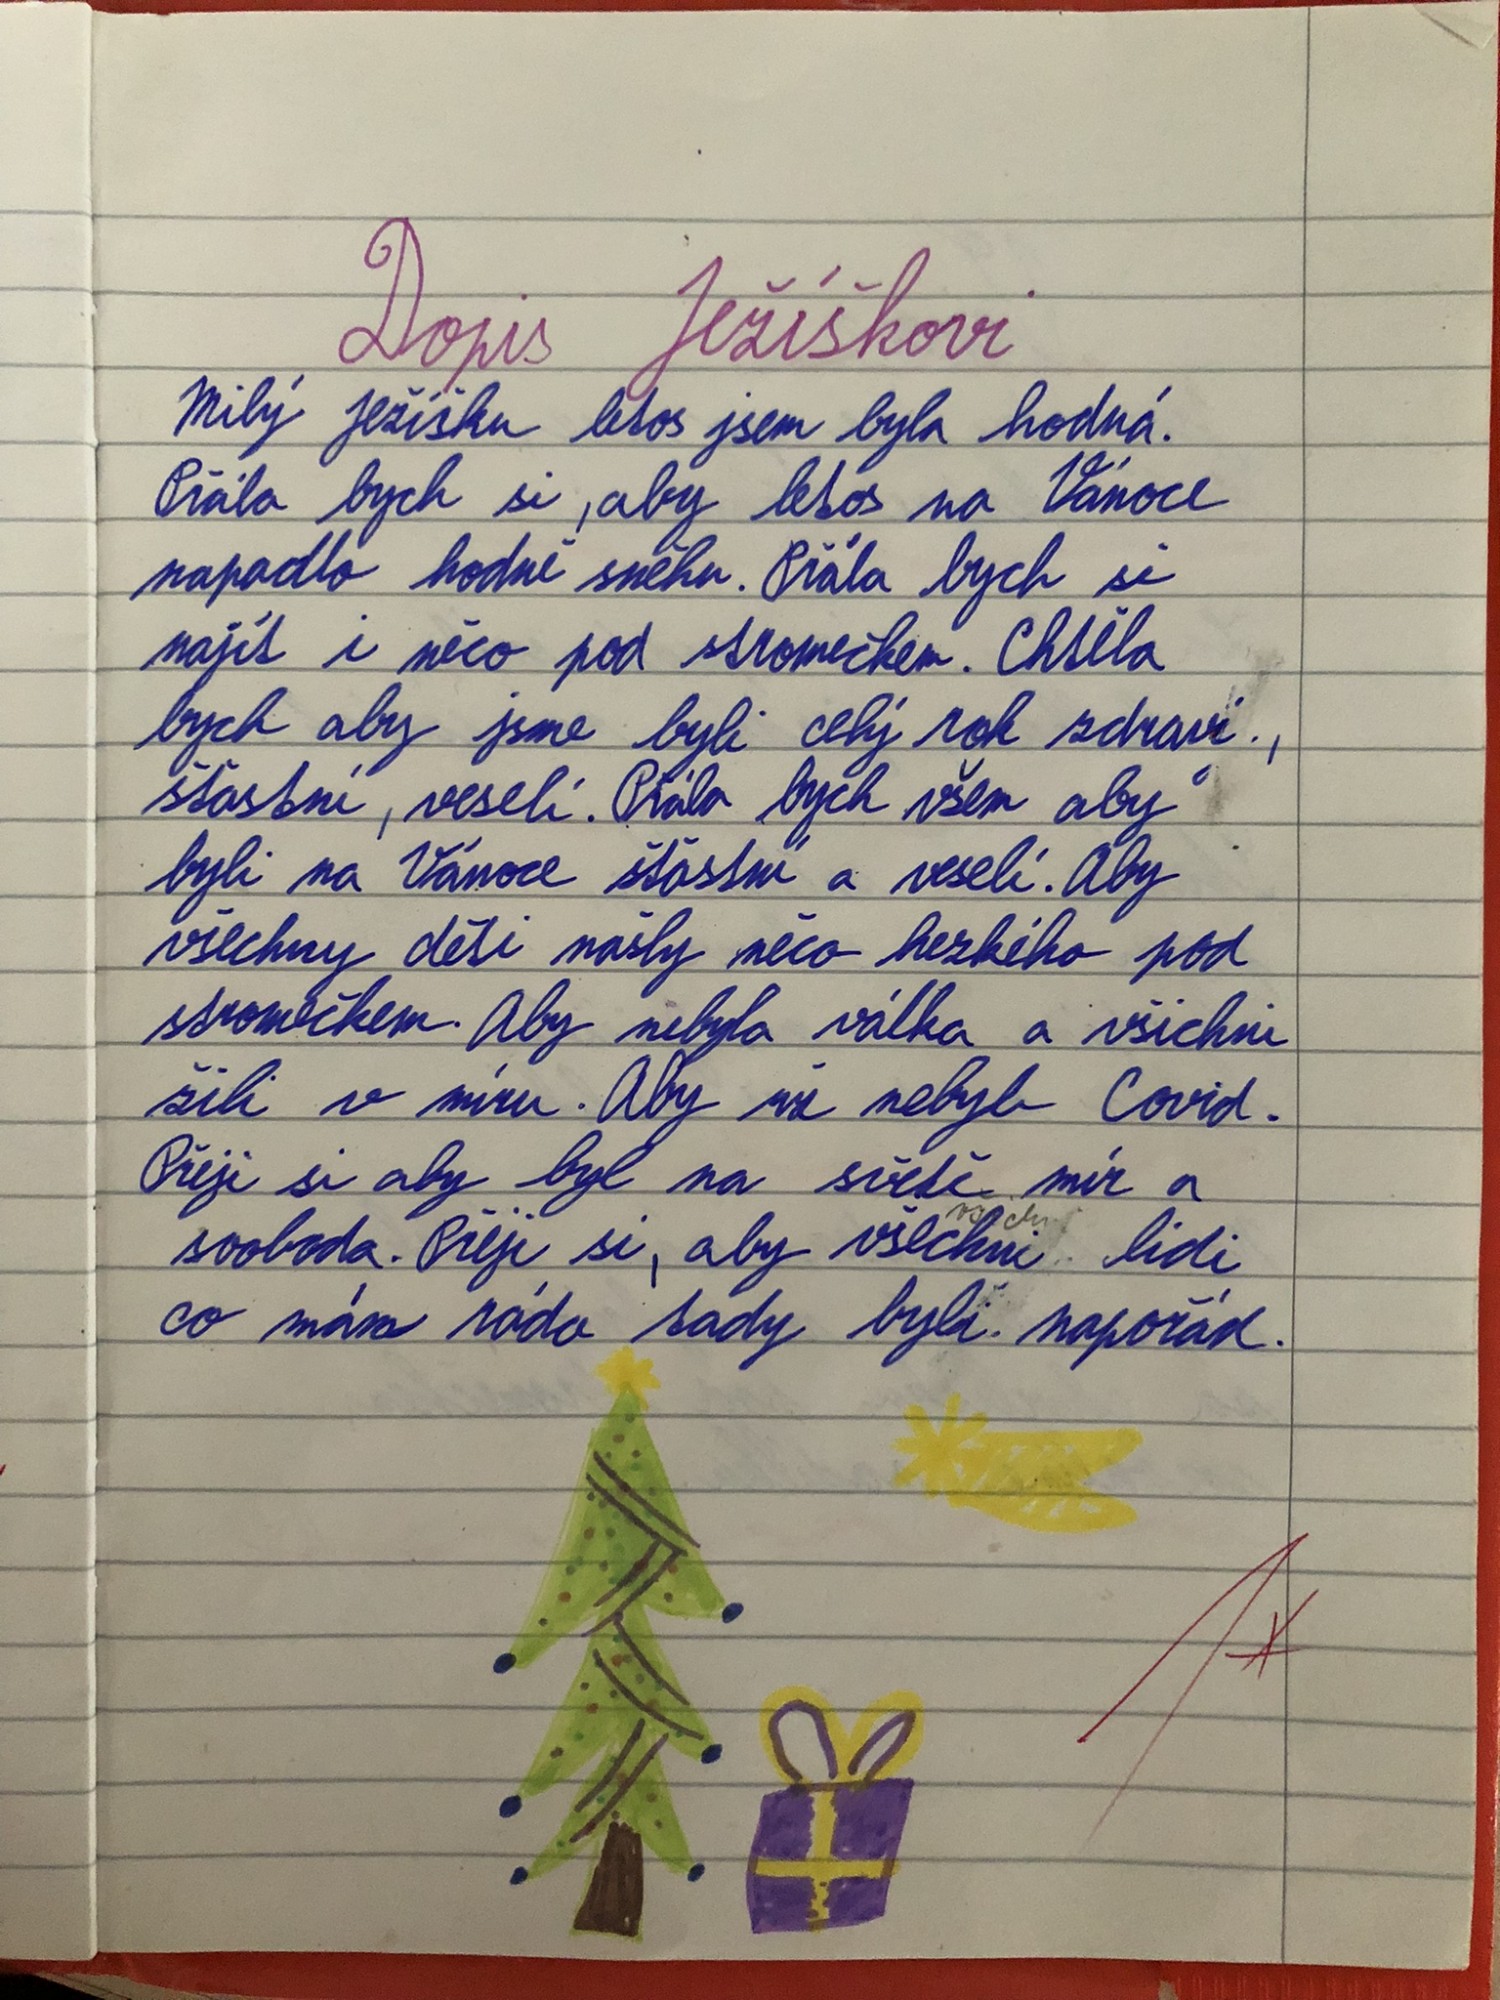 Dopis Ježíškovi
Milý Ježíšku letos jsem byla hodná.
Přála bych si, aby letos na Vánoce
napadlo hodně sněhu. Přála bych si
najít i něco pod stromečkem. Chtěla
bych aby jsme byli celý rok zdraví.,
šťastní, veselí. Přála bych všem aby
byli na Vánoce šťastní a veselí. Aby
všechny děti našly něco hezkého pod
stromečkem. Aby nebyla válka a všichni
žili v míru. Aby už nebyl Covid.
Přeji si aby byl na světě mír a
svoboda. Přeji si, aby všechni lidi
co mám ráda tady byli napořád.
1*